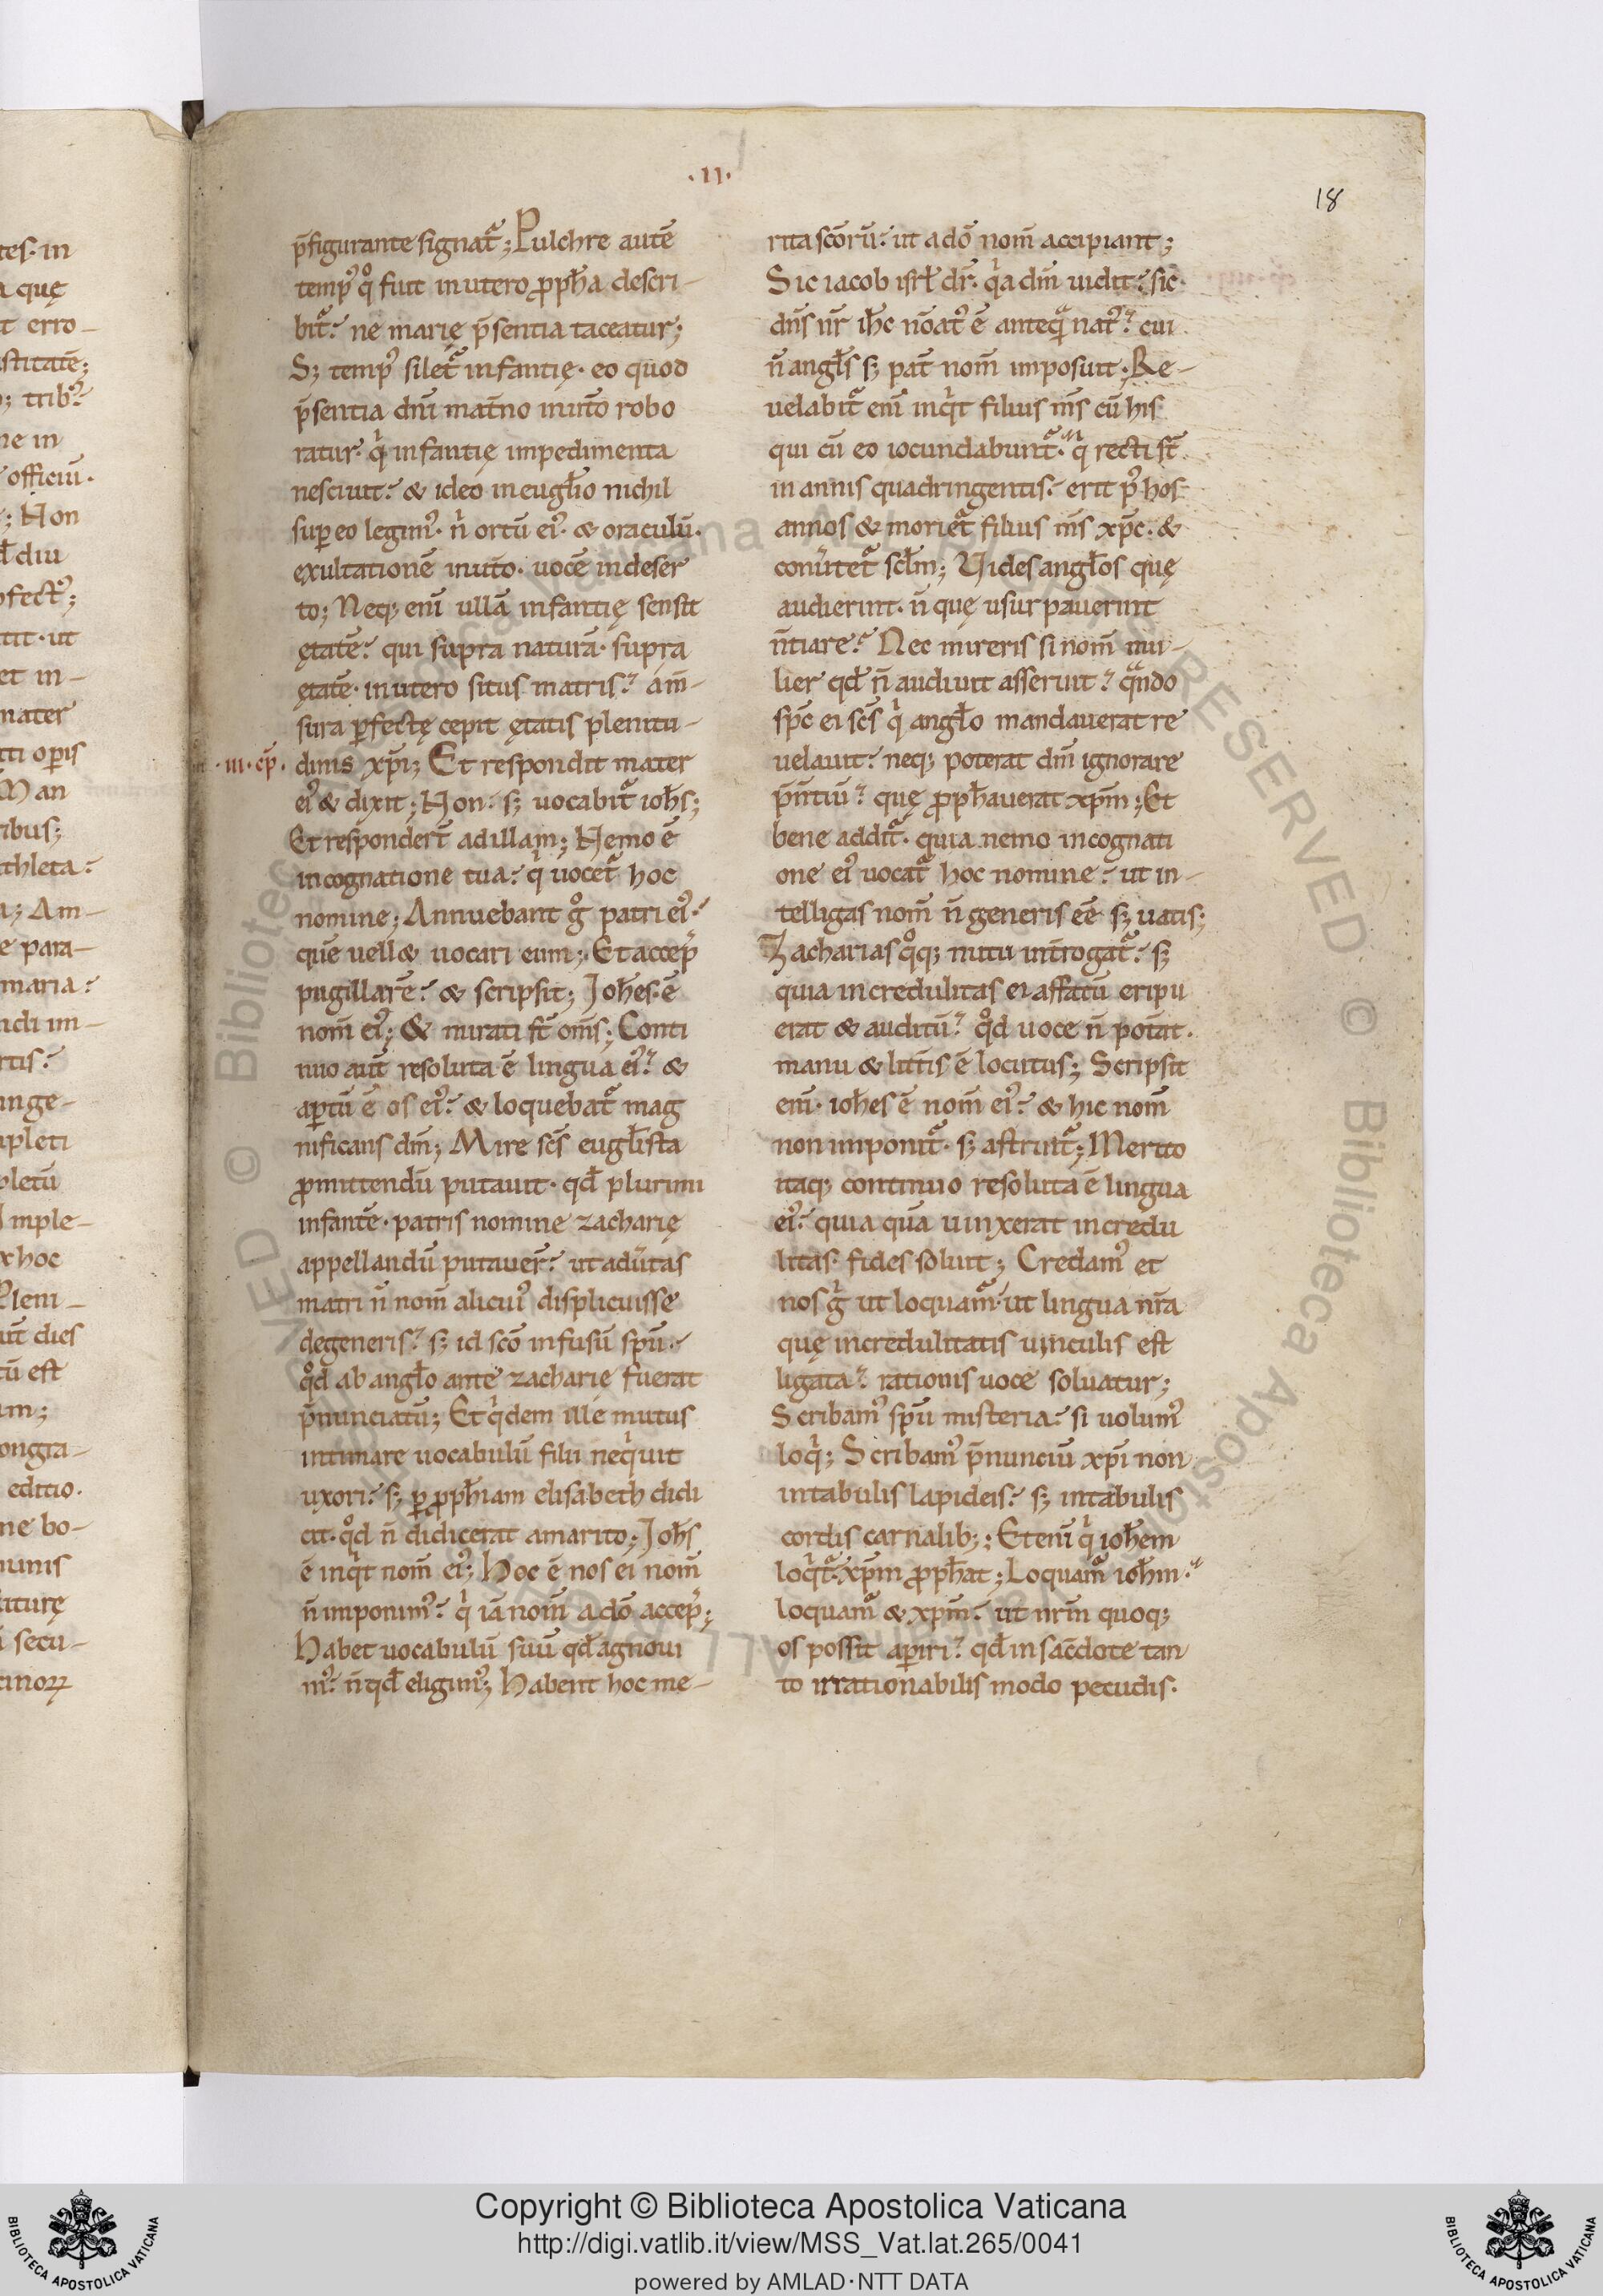 .II.
18
p̄figurante signat᷑; Pulchre autē
temp᷒ qͦ fuit in utero ꝓpħa descri-
bit᷑. ne marię p̄sentia taceatur;
S; temp᷒ silet᷑ infantię. eo quod
p̄sentia dn̄i mat̄no in ut̄o robo
ratur. qͥ infantię impedimenta
nesciuit. & ideo in eugłio nichil
suꝑ eo legim᷒. n̄ ortū ei᷒. & oraculū.
exultationē in ut̄o. uocē in deser
to; Neq; eni᷑ ullā infantię sensit
ętatē. qui supra naturā. supra
ętatē. in utero situs matris. a m̄-
sura ꝑfectę cepit ętatis plenitu-
.III. cp̄. dinis xp̄i; Et respondit mater
ei᷒ & dixit; Non. s; uocabit᷑ ioħs;
Et responder̄t ad illam; Nemo ē
in cognatione tua. qͥ uocet᷑ hoc
nomine; Annuebant gͦ patri ei᷒.
quē uell& uocari eum; Et accep᷒
pugillarē. & scripsit; Joħes. ē
nom̄ ei᷒; & mirati st̄ om̄s; Conti
nuo aut̄ resoluta ē lingua ei᷒. &
aꝑtū ē os ei᷒. & loquebat᷑ mag
nificans dm̄; Mire sc̄s eugłista
ꝓmittendū putauit. qđ plurimi
infantē. patris nomine zacharię
appellandū putauer̄. ut aduertas
matri n̄ nom̄ alicui᷒ displicuisse
degeneris. s; id sc̄o infusū spū.
qͦd ab angło ante zacharię fuerat
p̄nunciatū; Et qͥdem ille mutus
intimare uocabulū filii neqͥuit
uxori. s; ꝑ ꝓpħiam elisabeth didi
cit. qͦd n̄ didicerat a marito; Joħs
ē inqͥt nom̄ ei᷒; Hoc ē nos ei nom̄
n̄ imponim᷒. qͥ iā nom̄ a dō accep᷒;
Habet uocabulū suū qđ agnoui
m᷒. n̄ qđ eligim᷒; Habent hoc me-
rita sc̄orū. ut a dō nom̄ accipiant;
Sic iacob isrł dr̄. qͥa dm̄ uidit. sic
dn̄s nr̄ iħc nōat᷒ ē anteqᷓ nat᷒. cui
n̄ angłs s; pat̄ nom̄ imposuit. Re-
uelabit᷑ eni᷑ inqͥt filius m̄s cū his
qui cū eo iocundabunt᷑. qͥ recti st̄
in annis quadringentis. erit p᷒ hos
annos & moriet᷑ filius m̄s xp̄c. &
conuertet᷑ scłm; Uides angłos quę
audierint. n̄ quę usurpauerint
n̄tiare. Nec mireris si nom̄ mu-
lier qđ n̄ audiuit asseruit. qᷓndo
sp̄c ei sc̄s qͥ angło mandauerat re
uelauit. neq; poterat dm̄ ignorare
p̄n̄tiū. quę ꝓpħauerat xp̄m; Et
bene addit᷑. quia nemo in cognati
one ei᷒ uocat᷑ hoc nomine. ut in-
telligas nom̄ n̄ generis eē s; uatis;
Zacharias qͦq; nutu int̄rogat᷑. s;
quia incredulitas ei affatū eripu
erat & auditū. qͦd uoce n̄ pot̄at.
manu & litt̄is ē locutus; Scripsit
eni᷑. ioħes ē nom̄ ei᷒. & hic nom̄
non imponit᷑. s; astruit᷑; Merito
itaq; continuo resoluta ē lingua
ei᷒. quia quā uinxerat incredu
litas. fides soluit; Credam᷒ et
nos gͥ ut loquam᷑. ut lingua nr̄a
quę incredulitatis uinculis est
ligata. rationis uoce soluatur;
Scribam᷒ spū misteria. si uolum᷒
loqͥ; Scribam᷒ p̄nunciū xp̄i non
in tabulis lapideis. s; in tabulis
cordis carnalib;; Eteni᷑ qͥ ioħem
loqͥt᷑. xp̄m ꝓpħat; Loquam᷑ ioħm.
loquam᷑ & xp̄m. ut nr̄m quoq;
os possit aꝑiri. qđ in sac̄dote tan
to irrationabilis modo pecudis.
tes. in
a quę
t erro-
stitatē;
; trib᷒.
ne in
officiū.
; Non
đ diu
ꝓfect᷒;
tit. ut
et in-
mater
ti oꝑis
Man
ribus;
thleta.
a; Am-
e para-
maria.
ndi im-
rtis.
inge-
mpleti
pletū
Imple-
x hoc
Pleni-
ut dies
tū est
um;
ongra-
editio.
ne bo-
munis
uiturę
secu-
tinoꝝ
Copyright © Biblioteca Apostolica Vaticana
http://digi.vatlib.it/view/MSS_Vat.lat.265/0041
powered by AMLAD·NTT DATA
BIBLIOTECA APOSTOLICA VATICANA
BIBLIOTECA APOSTOLICA VATICANA